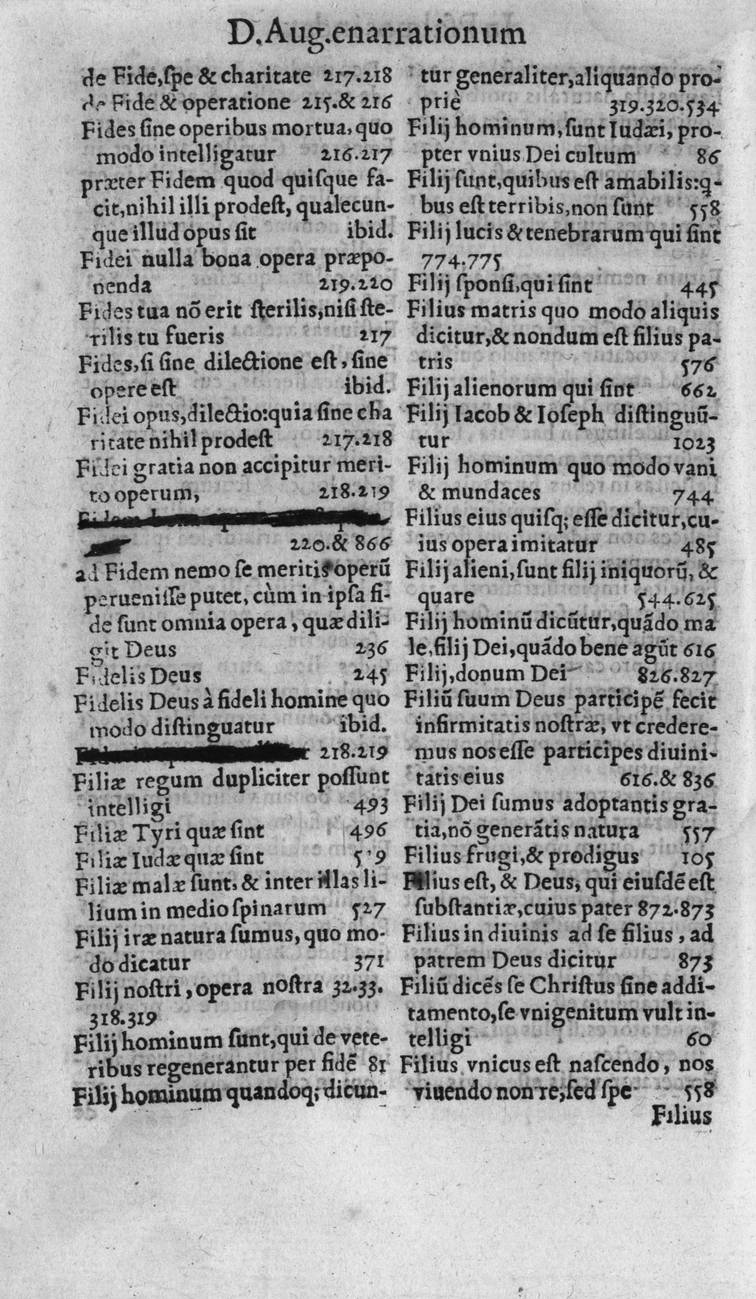 D.Aug.enarrationum
de Fide,ſpe & charitate 217.218
de Fide & operatione 215.& 216
Fides ſine operibus mortua, quo
modo intelligatur 216.217
præter Fidem quod quiſque fa-
cit,nihil illi prodeſt, qualecun-
que illud opus ſit ibid.
Fidei nulla bona opera præpo-
nenda 219.220
Fides tua nō erit ſterilis,niſi ſte-
rilis tu fueris 217
Fides,ſi ſine dilectione eſt, ſine
opere eſt ibid.
Fidei opus,dilectio:quia ſine cha
ritate nihil prodeſt 217.218
Fidei gratia non accipitur meri-
to operum, 218.219
220.& 866
ad Fidem nemo ſe meritis operū
perueniſſe putet, cùm in ipſa fi-
de ſunt omnia opera, quæ dili-
git Deus 236
Fidelis Deus 245
Fidelis Deus à fideli homine quo
modo diſtinguatur ibid.
218.219
Filiæ regum dupliciter poſſunt
intelligi 493
Filiæ Tyri quæ ſint 496
Filiæ Iudæ quæ ſint 5 9
Filiæ malæ ſunt, & inter illas li-
lium in medio ſpinarum 527
Filij iræ natura ſumus, quo mo-
do dicatur 371
Filij noſtri, opera noſtra 32.33.
318.319
Filij hominum ſunt,qui de vete-
ribus regenerantur per fidē 81
Filij hominum quandoq; dicun-
tur generaliter,aliquando pro-
priè 319.320.534
Filij hominum, ſunt Iudæi, pro-
pter vnius Dei cultum 86
Filij ſunt,quibus eſt amabilis:q-
bus eſt terribis,non ſunt 558
Filij lucis & tenebrarum qui ſint
774.775
Filij ſponſi,qui ſint 445
Filius matris quo modo aliquis
dicitur,& nondum eſt filius pa-
tris 576
Filij alienorum qui ſint 662
Filij Iacob & Ioſeph diſtinguū-
tur 1023
Filij hominum quo modo vani
& mundaces 744
Filius eius quiſq; eſſe dicitur,cu-
ius opera imitatur 485
Filij alieni,ſunt filij iniquorū, &
quare 544.625
Filij hominū dicūtur,quādo ma
le,filij Dei,quādo bene agūt 616
Filij,donum Dei 826.827
Filiū ſuum Deus participē fecit
infirmitatis noſtræ, vt credere-
mus nos eſſe participes diuini-
tatis eius 616.& 836
Filij Dei ſumus adoptantis gra-
tia,nō generātis natura 557
Filius frugi,& prodigus 105
Filius eſt, & Deus, qui eiuſdē eſt
ſubſtantiæ,cuius pater 872.873
Filius in diuinis ad ſe filius, ad
patrem Deus dicitur 873
Filiū dicēs ſe Chriſtus ſine addi-
tamento,ſe vnigenitum vult in-
telligi 60
Filius vnicus eſt naſcendo, nos
viuendo non re,ſed ſpe 558
Filius